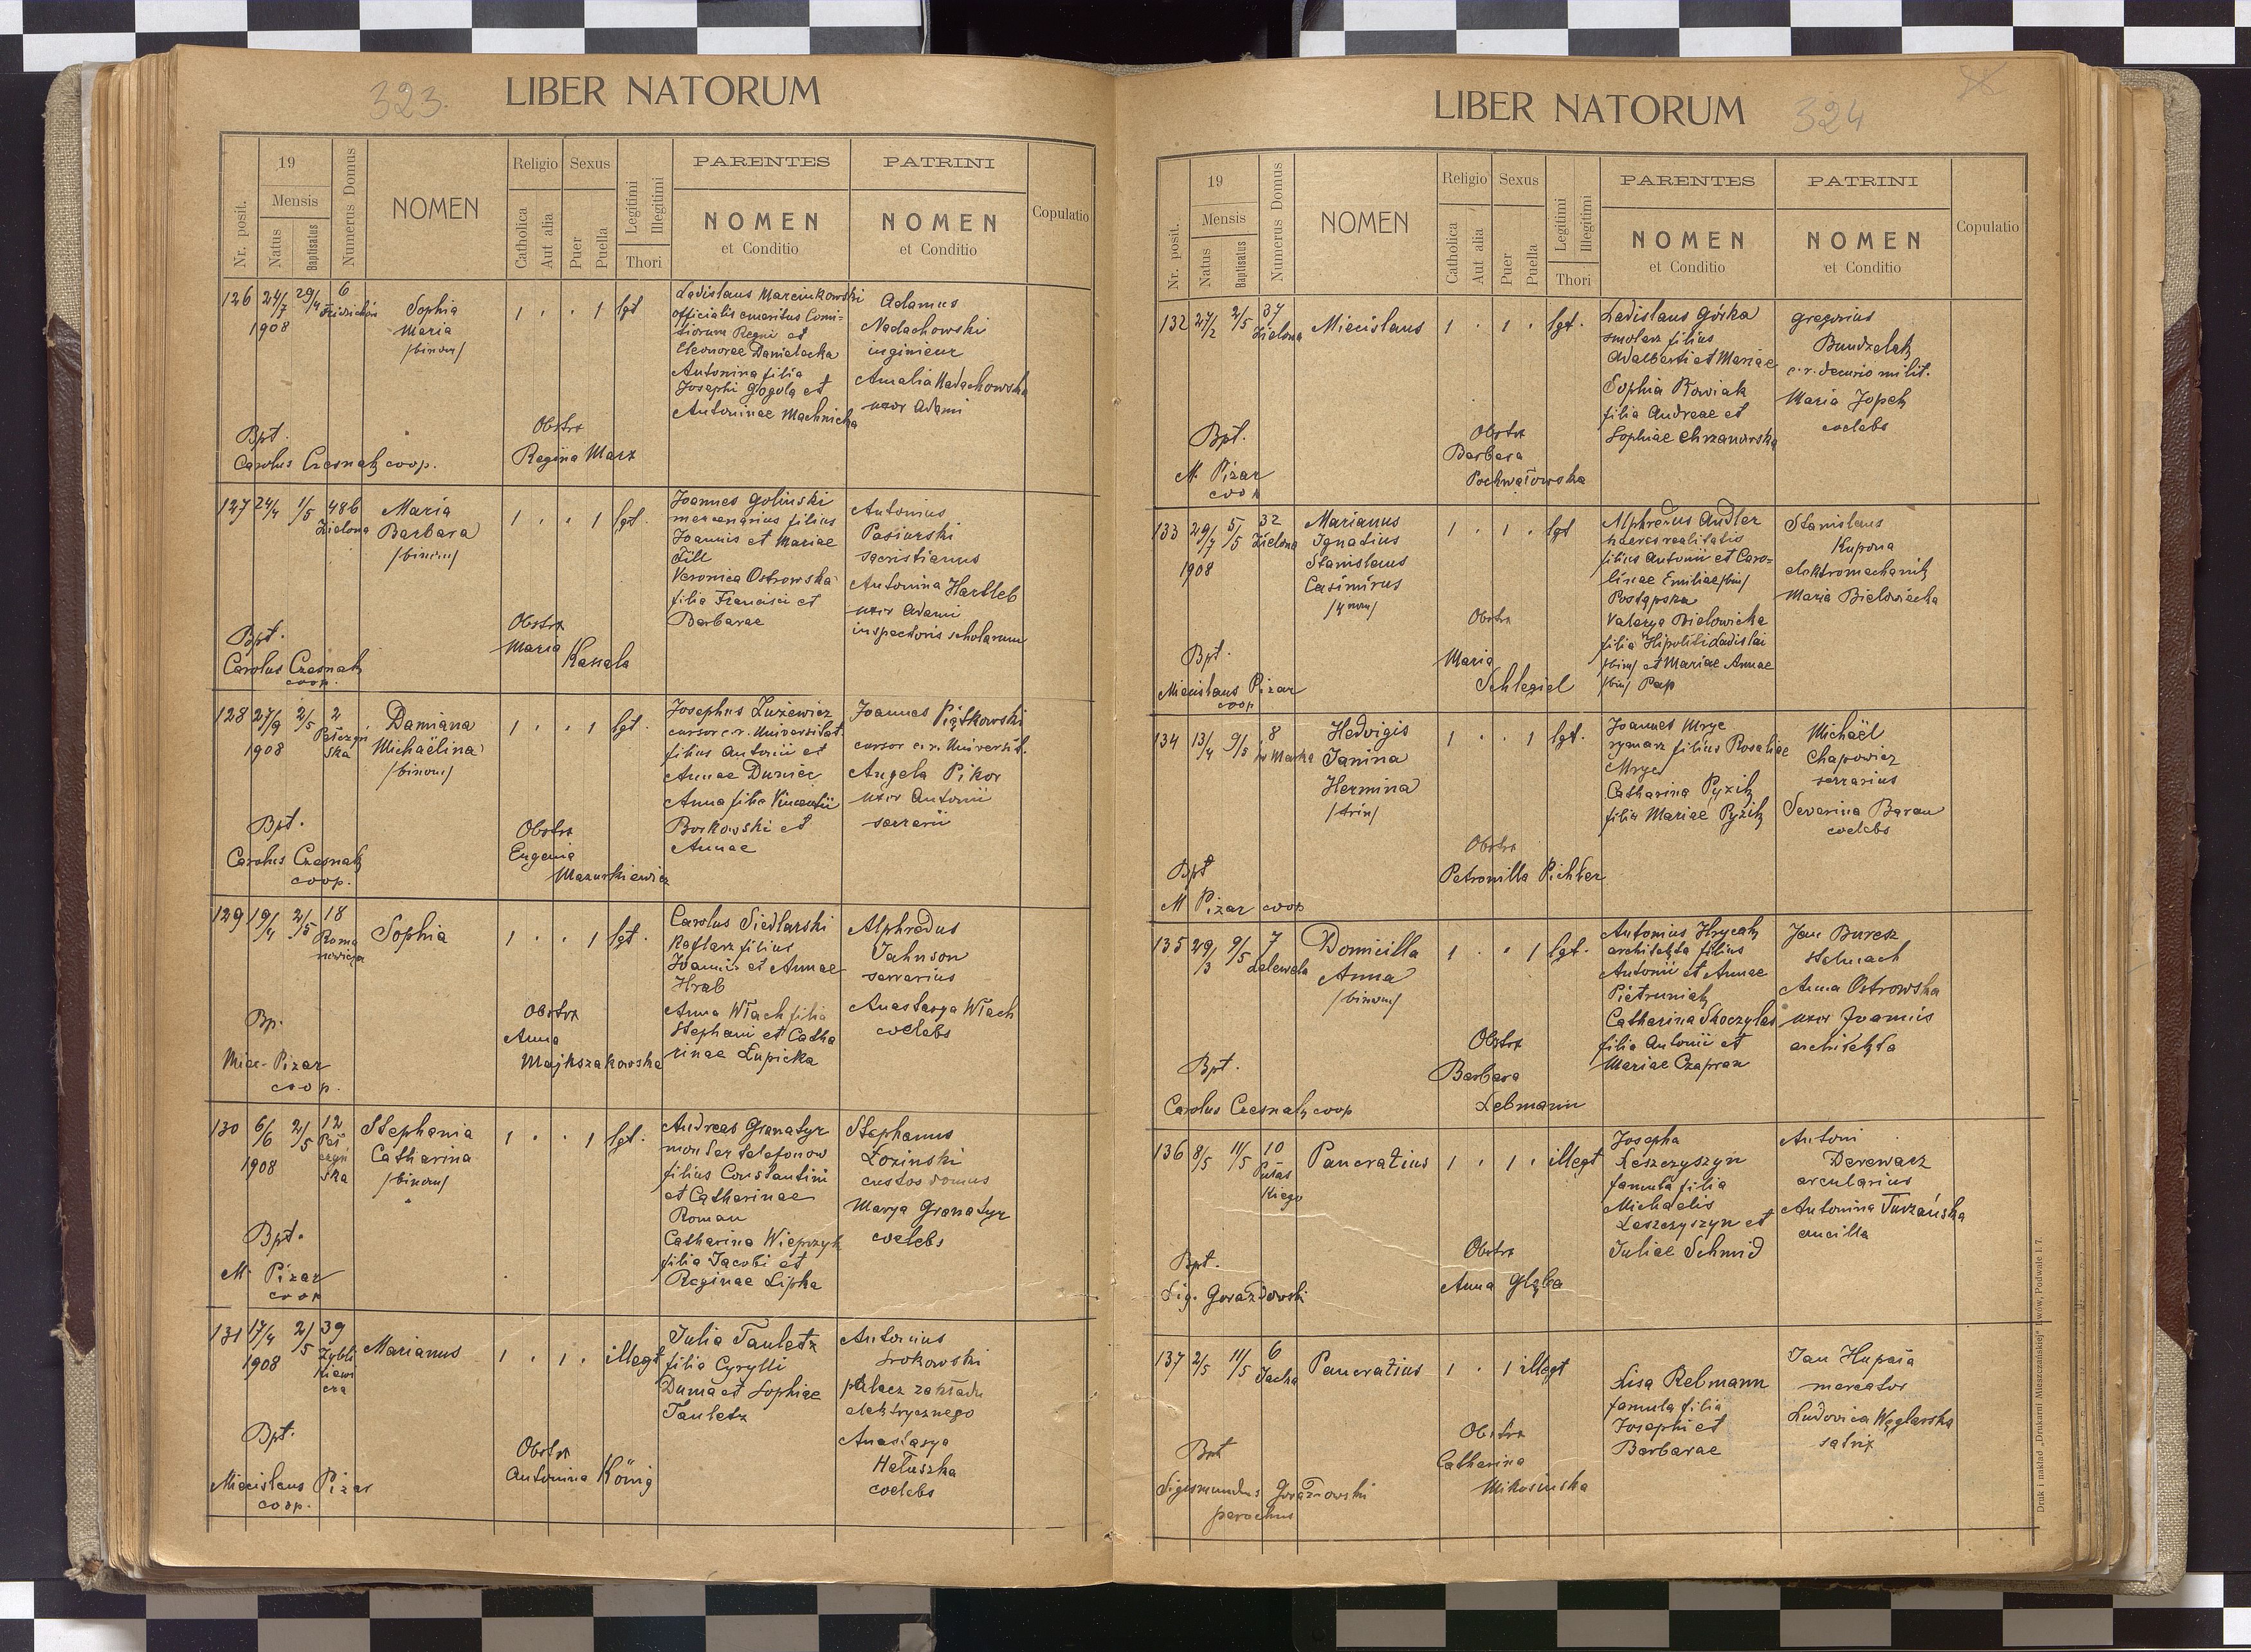 323.
LIBER NATORUM
Nr. posit.
19
Mensis
Natus
Baptisatus
Numerus Domus
NOMEN
Religio
Catholica
Aut alia
Sexus
Puer
Puella
Legitimi
Illegitimi
Thori
PARENTES
NOMEN
et Conditio
PATRINI
NOMEN
et Conditio
Copulatio
126 24/7 29/4 6
1908
Sophia
Maria
/binom/
1 . . 1 lgt
Ladislaus Marcinkowski
officialis emeritus Comi-
tiorum Regni et
Eleonorae Danielecka
Antonina filia
Josephi Gogola et
Antoninae Machnicka
Adamus
Nadachowski
inginieur
Amalia Nadachowska
uxor Adami
Obstrx
Regina Marx
Bpt.
Carolus Czesnak coop.
127 24/4 1/5 486
Zielona
Maria
Barbara
/binom/
1 . . 1 lgt.
Joannes Golinski
mercenarius filius
Joannis et Mariae
Till
Veronica Ostrowska
filia Francisci et
Barbarae
Antonius
Pasiurski
sacristianus
Antonina Hartleb
uxor Adami
inspectoris scholarum
Obstrx
Maria Kassala
Bpt.
Carolus Czesnak
coop.
128 27/9 2/5 2
1908
Pełczyń
ska
Damiana
Michaëlina
/binom/
1 . . 1 lgt.
Josephus Zużewicz
cursor c.r. Universitat.
filius Antonii et
Annae Duniec
Anna filia Vincentii
Borkowski et
Annae
Joannes Piątkowski
cursor c.r. Universit.
Angela Pikor
uxor Antonii
serrarii
Obstrx
Eugenia
Mazurkiewicz
Bpt.
Carolus Czesnak
coop.
129 19/4 2/5 18
Roma
nowicza
Sophia
1 . . 1 lgt.
Carolus Siedlarski
Kaflarz filius
Joannis et Annae
Hrab
Anna Wlach filia
Stephani et Catha
rinae Łupicka
Alphredus
Jahnson
serrarius
Anastasya Wlach
coelebs
Obstrx
Anna
Majkszakowska
Bp.
Miec. Pizar
coop.
130 6/6 2/5 12
1908
Peł
czyń
ska
Stephania
Catharina
/binom/
1 . . 1 lgt.
Andreas Granatyr
monter telefonow
filius Constantini
et Catharinae
Roman
Catharina Wieprzyk
filia Jacobi et
Reginae Lipka
Stephanus
Łozinski
custos domus
Marya Granatyr
coelebs
Bpt.
M. Pizar
coop
131 17/4 2/5 39
1908
Zybli
kiewi
cza
Marianus
1 . 1 . illegt
Julia Tauletz
filia Cyrylli
Duma et Sophiae
Tauletz
Antonius
Srokowski
palacz zakładu
elektrycznego
Anastasya
Hałuszka
coelebs
Obstrx
Antonina König
Bpt.
Miecislaus Pizar
coop.
LIBER NATORUM
324
Nr. posit.
19
Mensis
Natus
Baptisatus
Numerus Domus
NOMEN
Religio
Catholica
Aut alia
Sexus
Puer
Puella
Legitimi
Illegitimi
Thori
PARENTES
NOMEN
et Conditio
PATRINI
NOMEN
et Conditio
Copulatio
132 27/2 2/5 37
Zielona
Miecislaus
1 . 1 . lgt.
Ladislaus Górka
smolarz filius
Adalberti et Mariae
Sophia Rowiak
filia Andreae et
Sophiae Chrzanowska
Gregorius
Bundzelak
c.r. decurio milit.
Maria Jopek
coelebs
Obstrx
Barbara
Pochwałowska
Bpt.
M. Pizar
coop
133 29/7 5/5 32
1908
Zielona
Marianus
Ignatius
Stanislaus
Casimirus
1 . 1 . lgt
Alphredus Andler
haeres realitatis
filius Antonii et Caro-
linae Emiliae /bin/
Postępska
Valerya Bielowicka
filia Hipoliti Ladislai
/bin/ et Mariae Annae
/bin/ Pap
Stanislaus
Kuprowa
elektromechanik
Maria Bielowiecka
Obstrx
Maria
Schlegiel
Bpt.
Miecislaus Pizar
coop
134 13/4 9/5 8
św Marka
Hedvigis
Janina
Hermina
/trin/
1 . . 1 lgt.
Joannes Mryc
rymarz filius Rosaliae
Mryc
Catharina Pyzik
filia Mariae Pyzik
Michaël
Chapowicz
serrarius
Severina Baran
coelebs
Obstrx
Petronilla Pichler
Bpt
M Pizar coop
135 29/3 9/5 7
Lelewela
Domicilla
Anna
/binom/
1 . . 1 lgt.
Antonius Hrycak
architekta filius
Antonii et Annae
Pietruniak
Catharina Skoczylas
filia Antonii et
Mariae Czapran
Jan Buresz
stelmach
Anna Ostrowska
uxor Joannis
architekta
Obstrx
Barbara
Lebmann
Bpt.
Carolus Czesnak coop
136 8/5 11/5 10
Pułas
kiego
Pancratius
1 . 1 . illegt
Josepha
Leszczyszyn
famula filia
Michaelis
Leszczyszyn et
Juliae Schmid
Antoni
Derewacz
arcularius
Antonina Turzańska
ancilla
Obstrx
Anna Głąba
Bpt.
Sig. Gorazdowski
137 2/5 11/5 6
Jacka
Pancratius
1 . 1 illegt
Lisa Relmann
famula filia
Josephi et
Barbarae
Jan Hupała
mercator
Ludovica Węglarska
satrix
Obstrx
Catharina
Mikosinska
Bpt
Sigismundus Gorazdowski
parochus
Druk i nakład „Drukarni Mieszczańskiej" Lwów, Podwale l. 7.